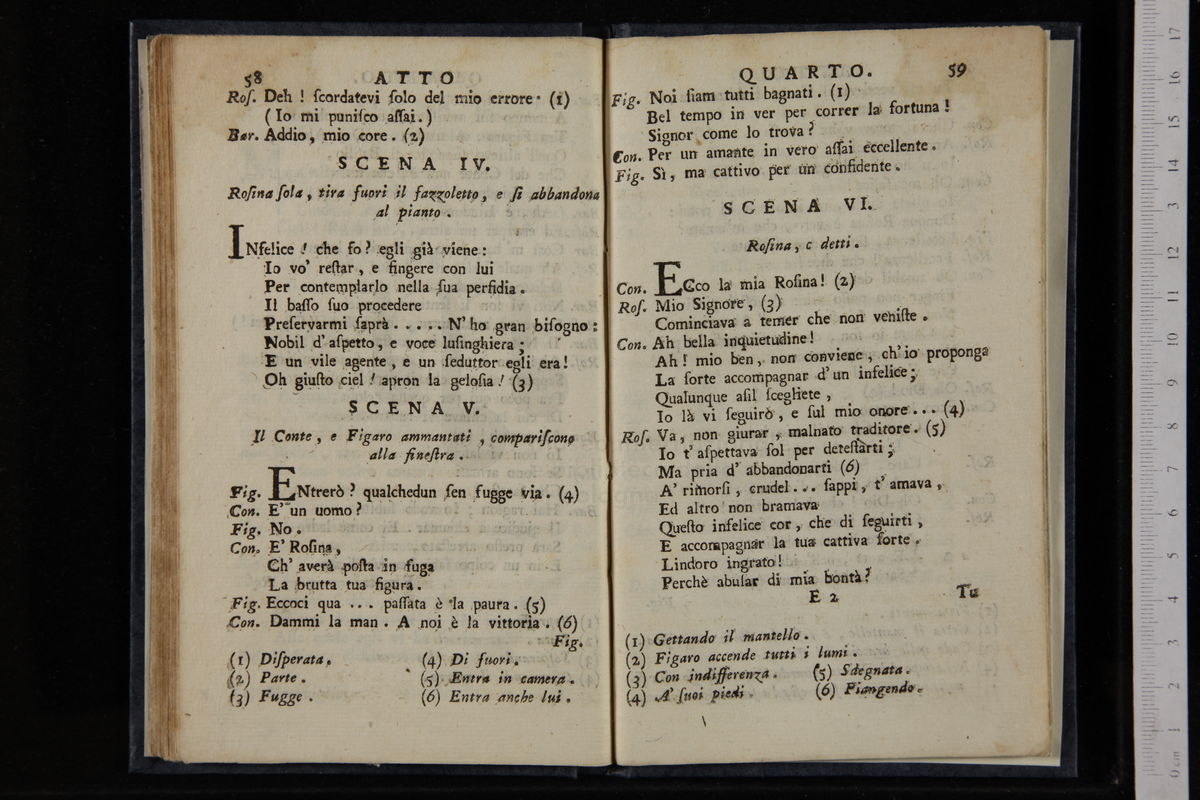 58 ATTO
Roſ. Deh ! ſcordatevi ſolo del mio errore. (1)
( Io mi puniſco aſſai. )
Bar. Addio, mio core. (2)
SCENA IV.
Roſina ſola, tira fuori il fazzoletto, e ſi abbandona
al pianto.
INfelice ! che fo ? egli già viene :
Io vo' reſtar, e fingere con lui
Per contemplarlo nella ſua perfidia.
Il baſſo ſuo procedere
Preſervarmi ſaprà . . . . . N' ho gran biſogno :
Nobil d' aſpetto, e voce luſinghiera ;
E un vile agente, e un ſeduttor egli era !
Oh giuſto ciel ! apron la geloſia ! (3)
SCENA V.
Il Conte, e Figaro ammantati, compariſcono
alla fineſtra.
Fig. ENtrerò ? qualchedun ſen fugge via. (4)
Con. E' un uomo ?
Fig. No.
Con. E' Roſina,
Ch' averà poſta in fuga
La brutta tua figura.
Fig. Eccoci qua ... paſſata è la paura. (5)
Con. Dammi la man. A noi è la vittoria. (6)
Fig.
(1) Diſperata. (4) Di fuori.
(2) Parte. (5) Entra in camera.
(3) Fugge. (6) Entra anche lui.
QUARTO. 59
Fig. Noi ſiam tutti bagnati. (1)
Bel tempo in ver per correr la fortuna !
Signor come lo trova ?
Con. Per un amante in vero aſſai eccellente.
Fig. Sì, ma cattivo per un confidente.
SCENA VI.
Roſina, e detti.
Con. ECco la mia Roſina ! (2)
Roſ. Mio Signore, (3)
Cominciava a temer che non veniſte.
Con. Ah bella inquietudine !
Ah ! mio ben, non conviene, ch' io proponga
La ſorte accompagnar d' un infelice ;
Qualunque aſil ſcegliete,
Io là vi ſeguirò, e ſul mio onore ... (4)
Roſ. Va, non giurar, malnato traditore. (5)
Io t' aſpettava ſol per deteſtarti ;
Ma pria d' abbandonarti (6)
A' rimorſi, crudel ... ſappi, t' amava,
Ed altro non bramava
Queſto infelice cor, che di ſeguirti,
E accompagnar la tua cattiva ſorte.
Lindoro ingrato !
Perchè abuſar di mia bontà ?
E 2 Tu
(1) Gettando il mantello.
(2) Figaro accende tutti i lumi.
(3) Con indifferenza. (5) Sdegnata.
(4) A' ſuoi piedi. (6) Piangendo.